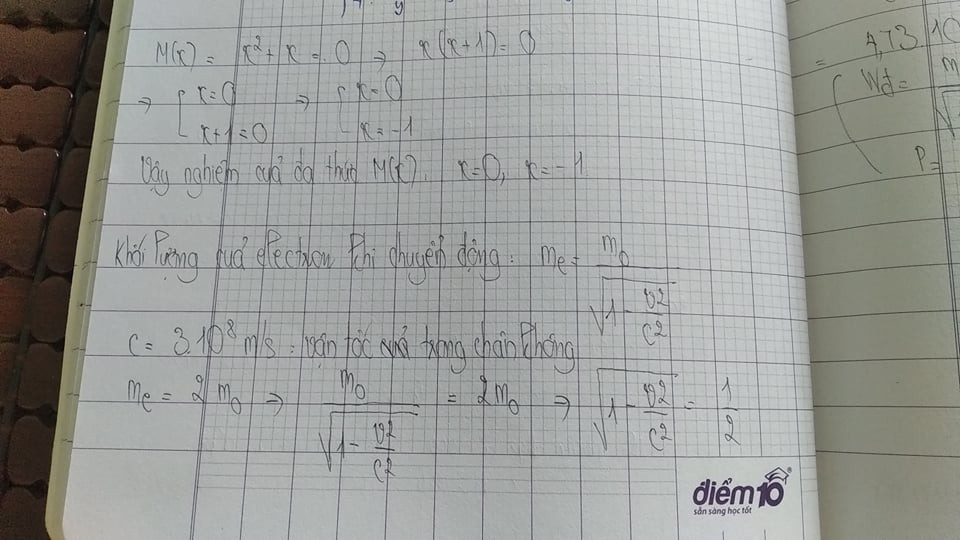 M(x) = x² + x = 0 ⇒ x(x+1) = 0
⇒ [ x = 0 ⇒ [ x = 0
x+1 = 0 x = -1
Vậy nghiệm của đa thức M(x). x = 0, x = -1
Khối lượng của electron khi chuyển động: mₑ = m₀ / √(1 - v²/c²)
c = 3.10⁸ m/s: vận tốc của trong chân không
mₑ = 2 m₀ ⇒ m₀ / √(1 - v²/c²) = 2m₀ ⇒ √(1 - v²/c²) = 1/2
= 4,73.10
Wđ = m
P =
điểm10®
sẵn sàng học tốt